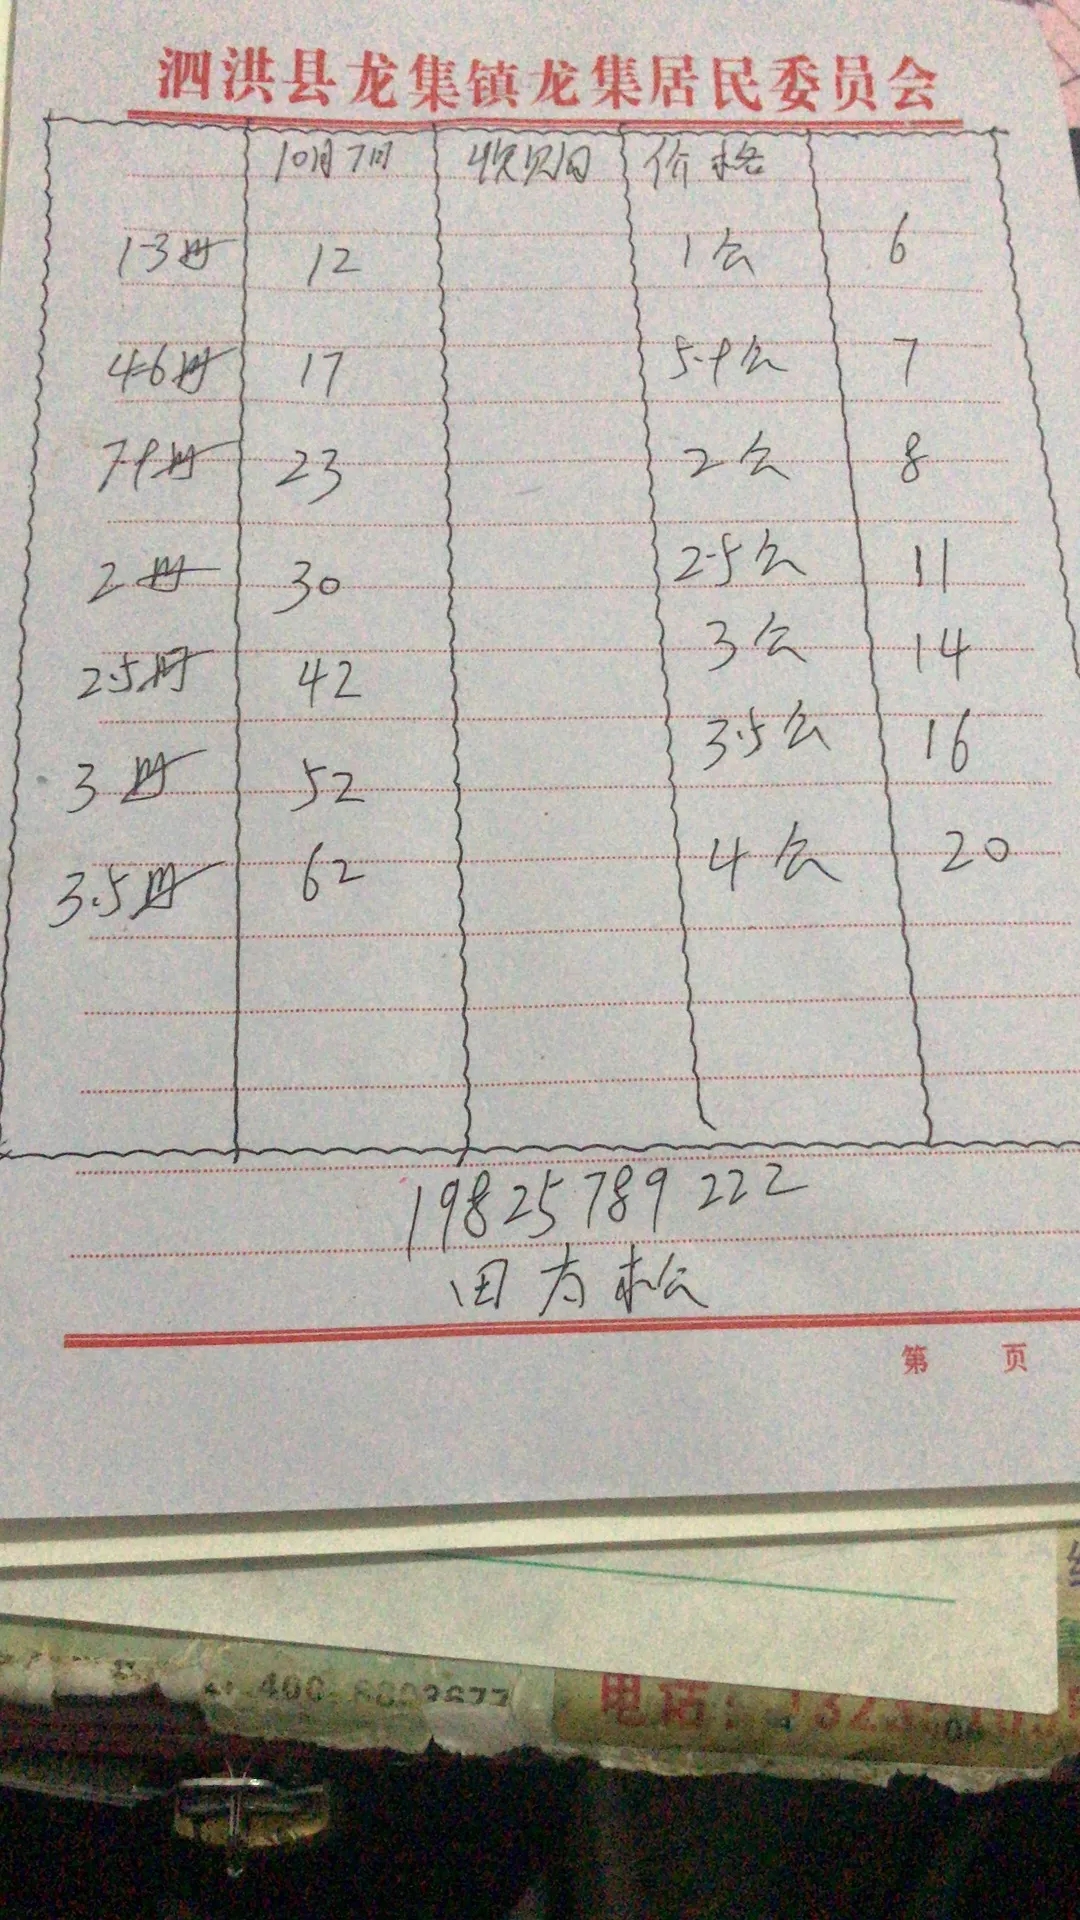 泗洪县龙集镇龙集居民委员会
10月7日 收购 价格
1-3母 12 1公 6
4-6母 17 5-9公 7
7-9母 23 2公 8
2母 30 2.5公 11
2.5母 42 3公 14
3母 52 3.5公 16
3.5母 62 4公 20
19825789222
田为松
第 页
400-
电话: